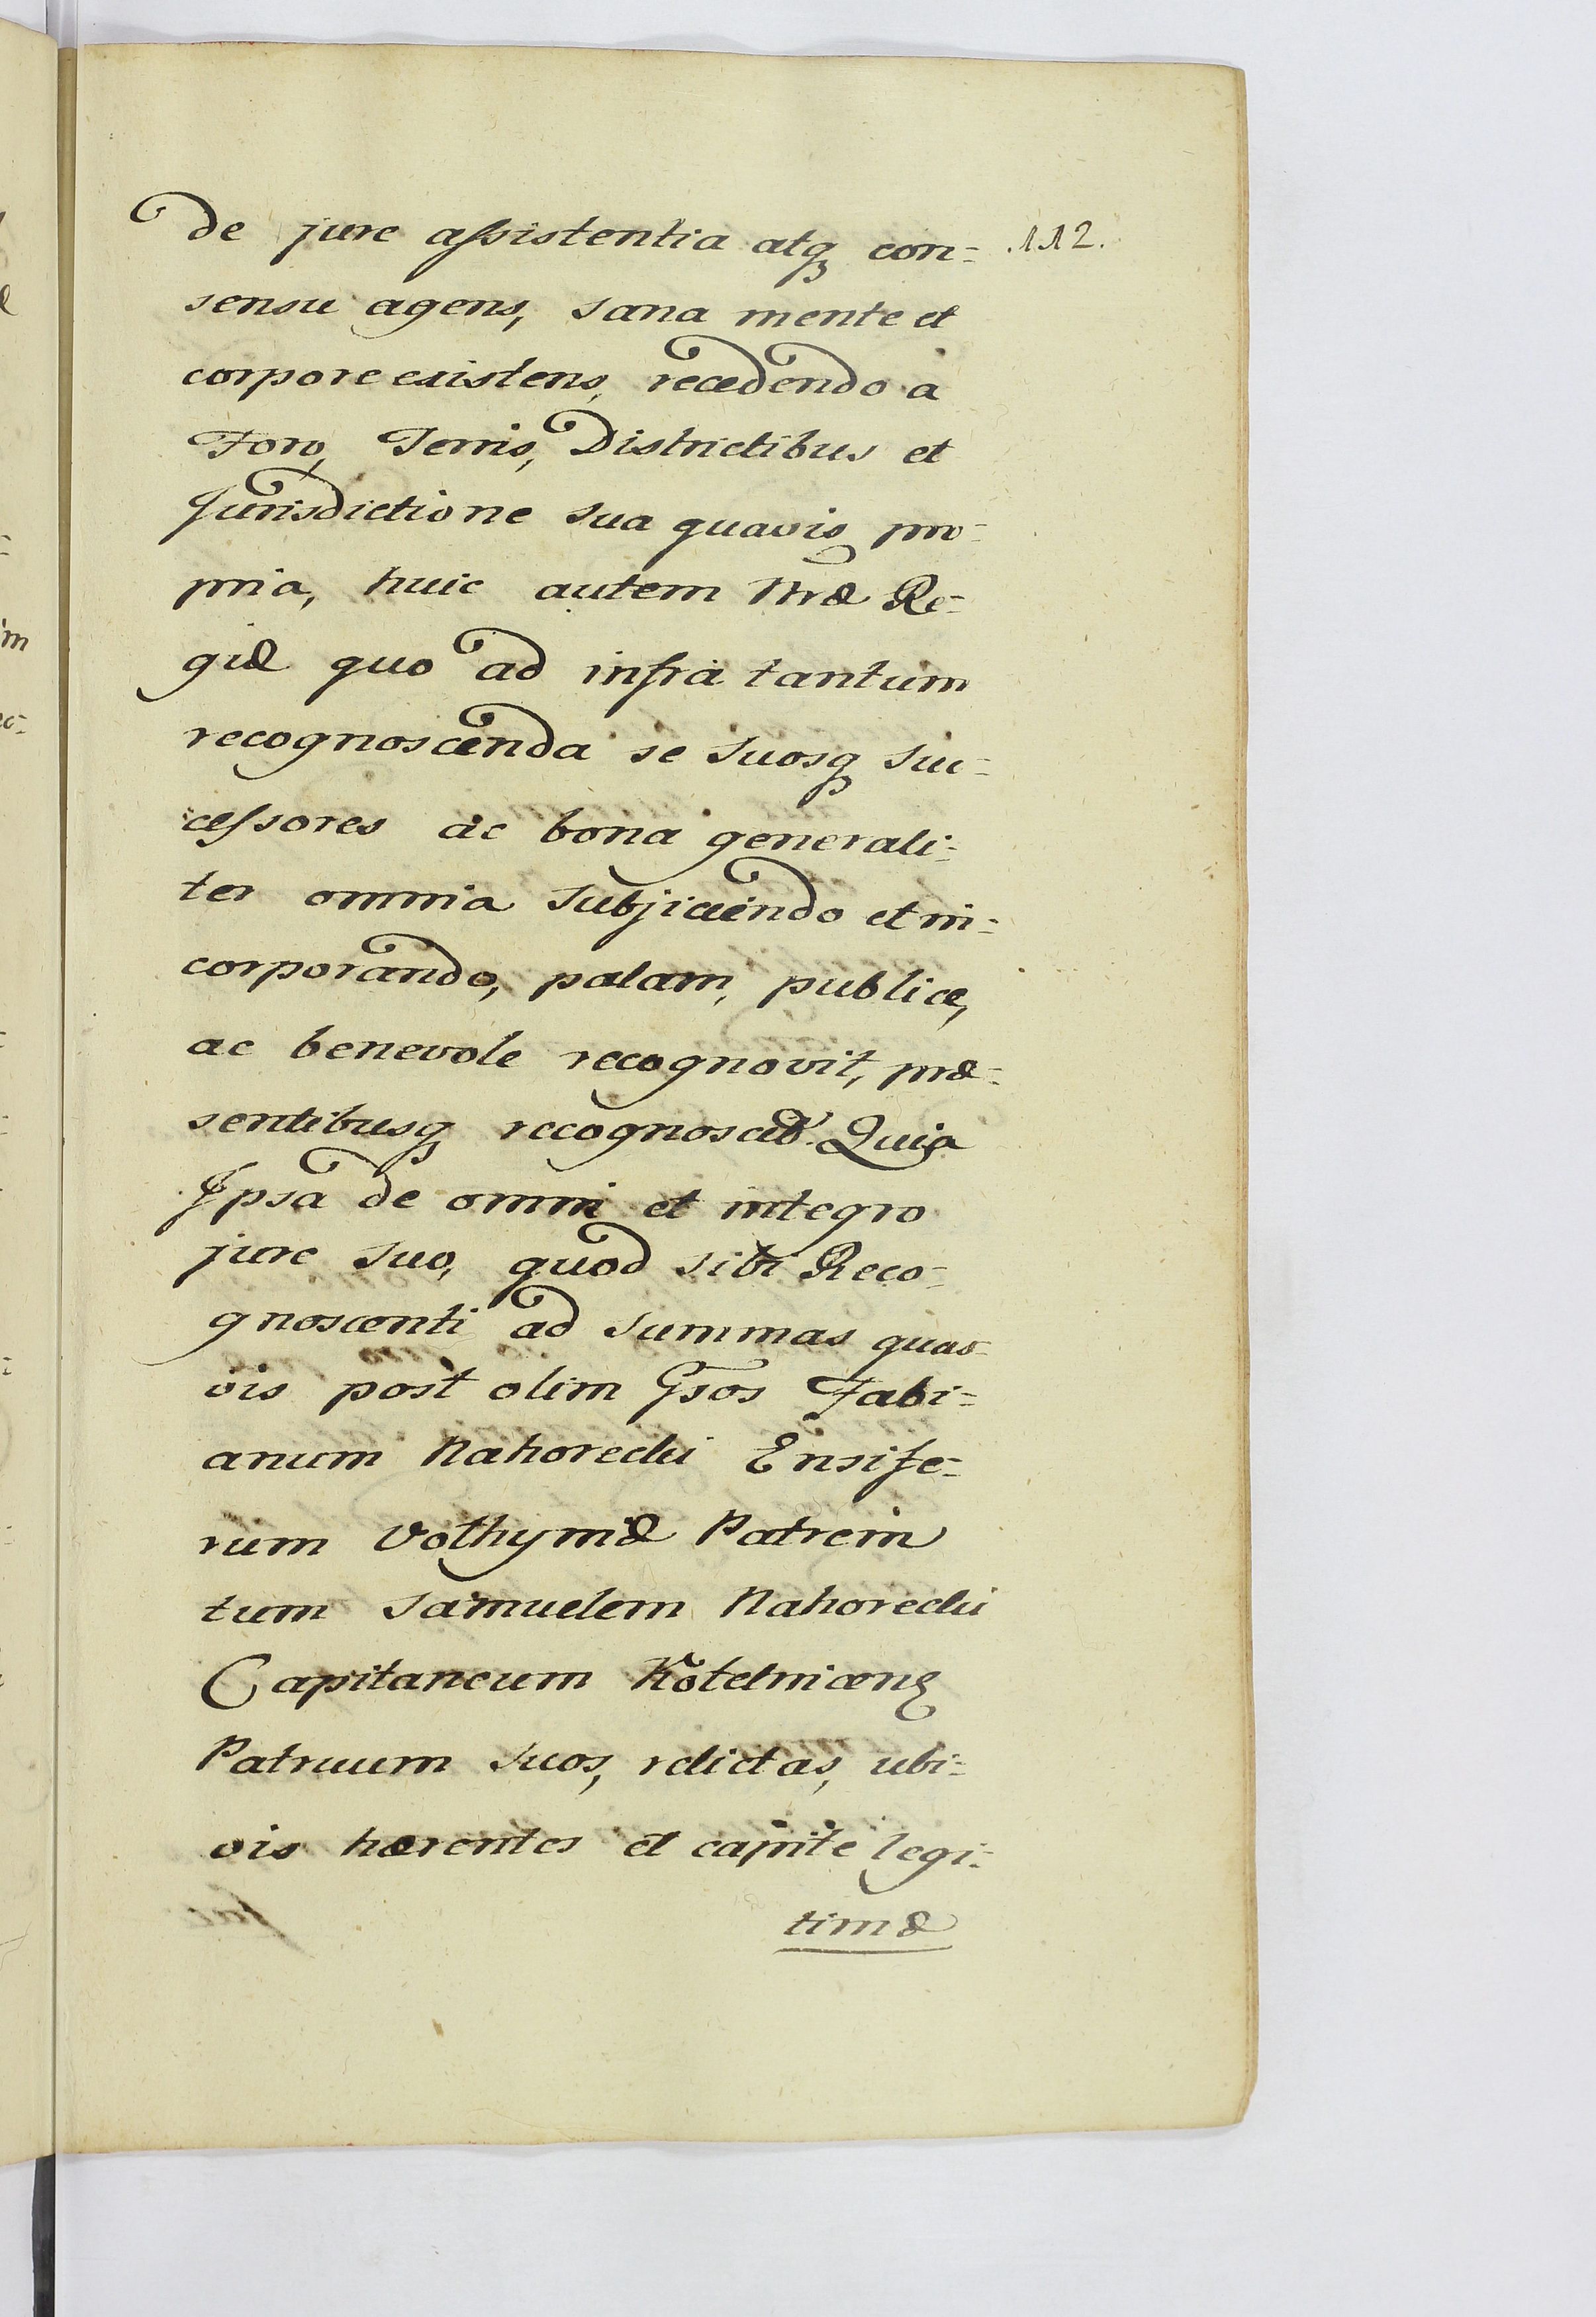 de jure assistentia atq con- .112.
sensu agens, sana mente et
corpore existens, recedendo a
Foro, Terris, Districtibus et
Jurisdictione sua quavis pro-
pria, huic autem Nræ Re-
giæ quo ad infra tantum
recognoscenda se suosq suc-
cessores ac bona generali-
ter omnia subjiciendo et in-
corporando, palam, publice,
ac benevole recognovit, præ-
sentibusq recognoscit. Quia
Ipsa de omni et integro
jure suo, quod sibi Reco-
gnoscenti ad summas quas-
vis post olim Gsos Fabi-
anum Nahorecki Ensife-
rum Volhyniæ Patrem
tum Samuelem Nahorecki
Capitaneum Kotelnicens
Patruum suos, relictas, ubi-
vis hærentes et capite legi-
timæ